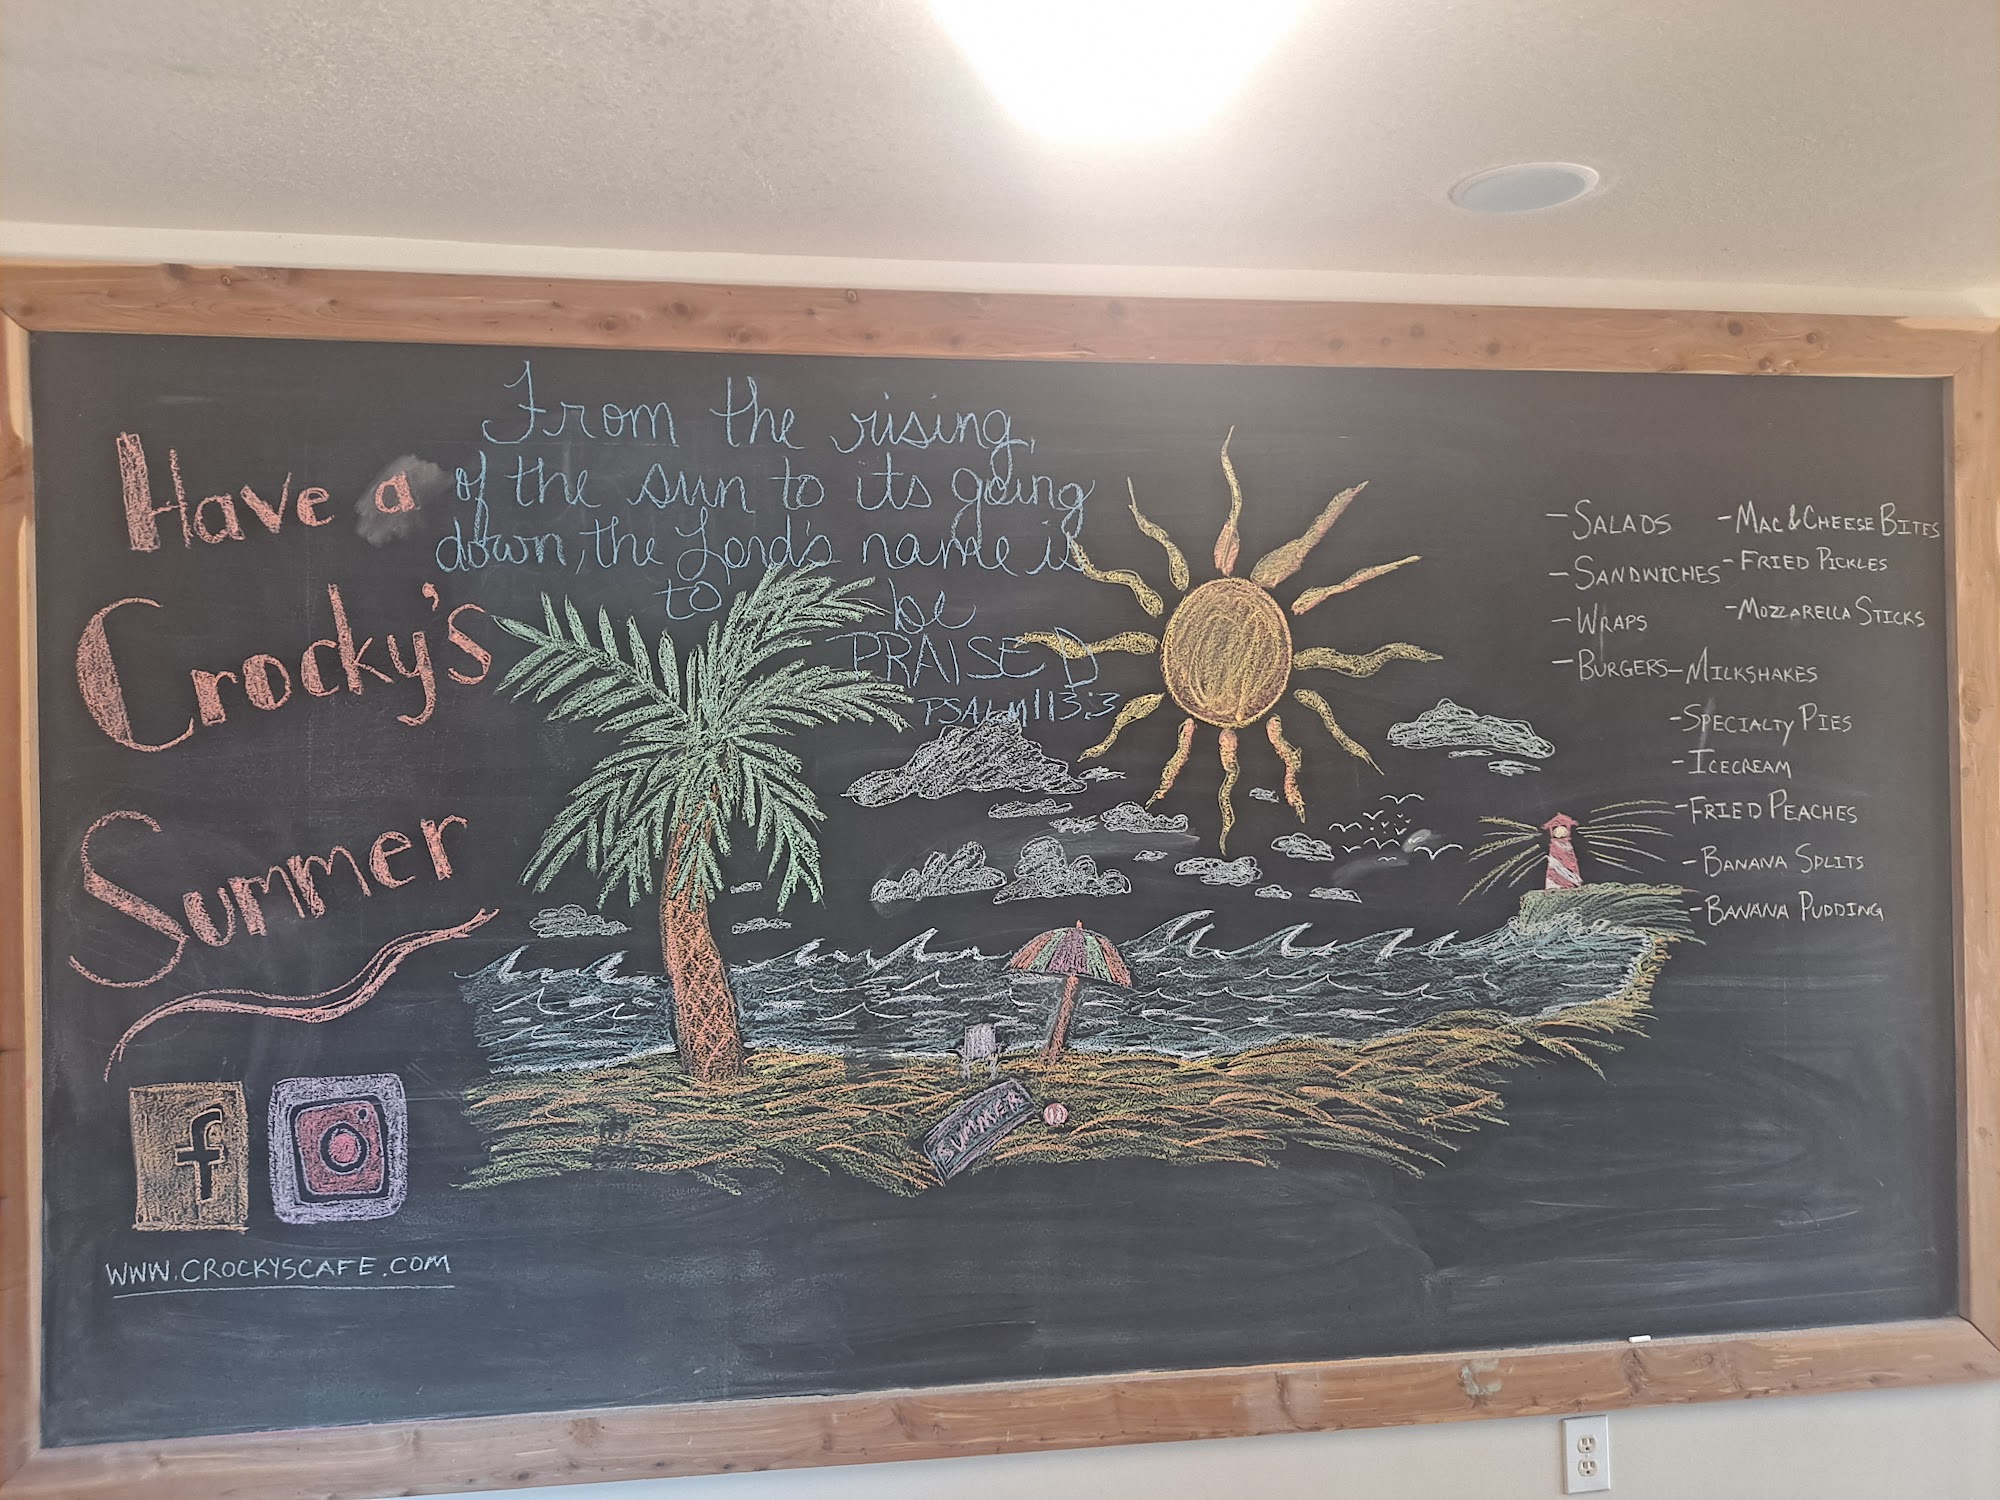 Have a
Crocky's
Summer
From the rising,
of the sun to its going
down, the Lord's name is
to be
PRAISED
PSALM 113:3
-SALADS
-SANDWICHES
-WRAPS
-BURGERS
-MAC & CHEESE BITES
-FRIED PICKLES
-MOZZARELLA STICKS
-MILKSHAKES
-SPECIALTY PIES
-ICECREAM
-FRIED PEACHES
-BANANA SPLITS
-BANANA PUDDING
SUMMER
f
WWW.CROCKYSCAFE.COM